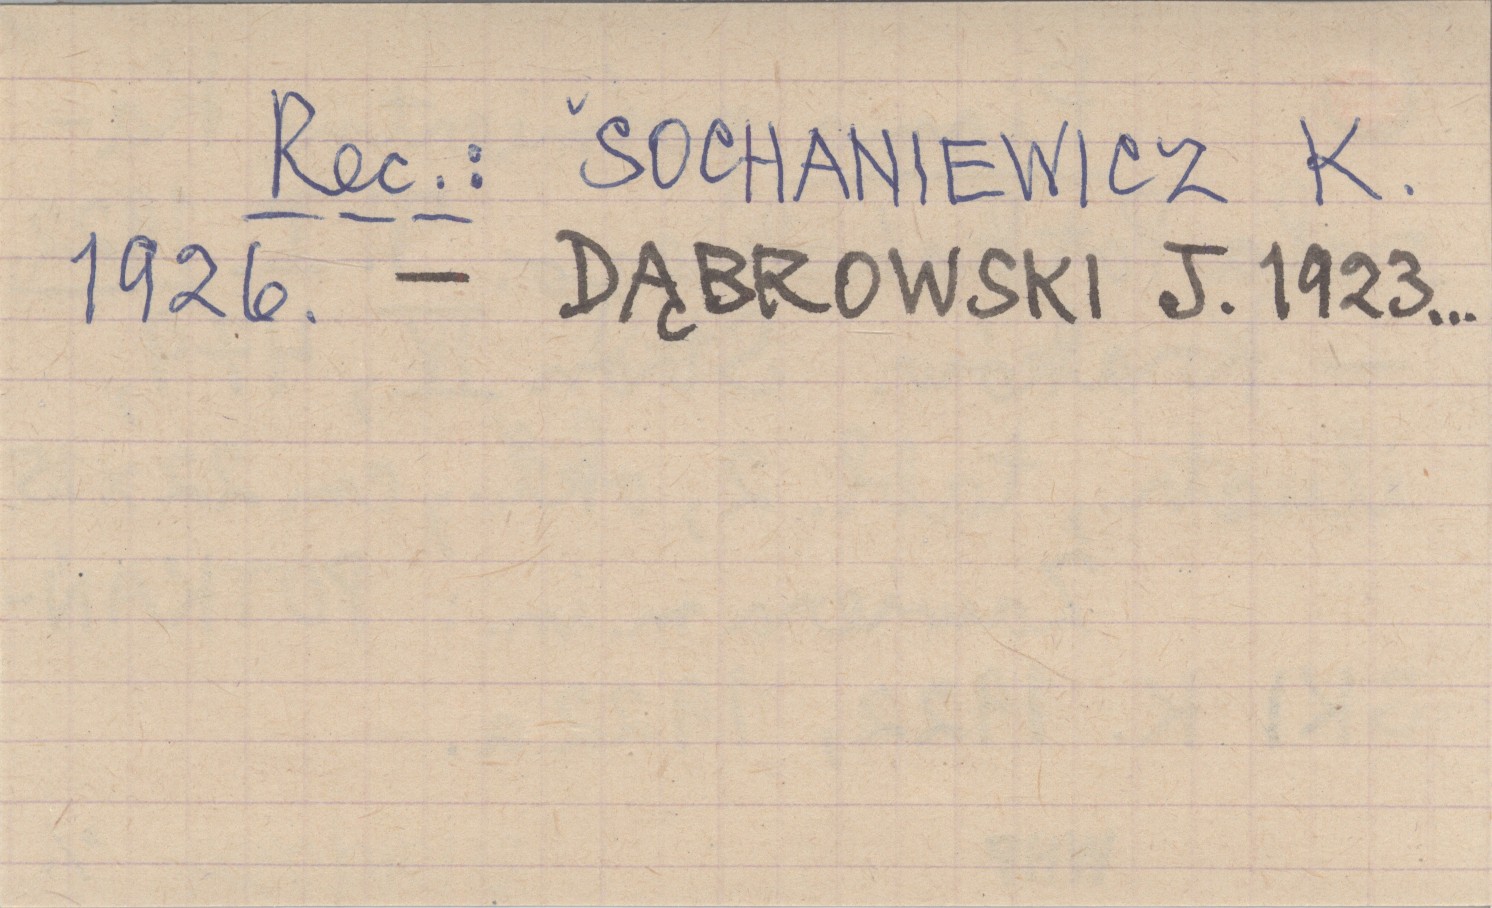 Rec.: ˇSOCHANIEWICZ K.
1926. — DĄBROWSKI J. 1923...